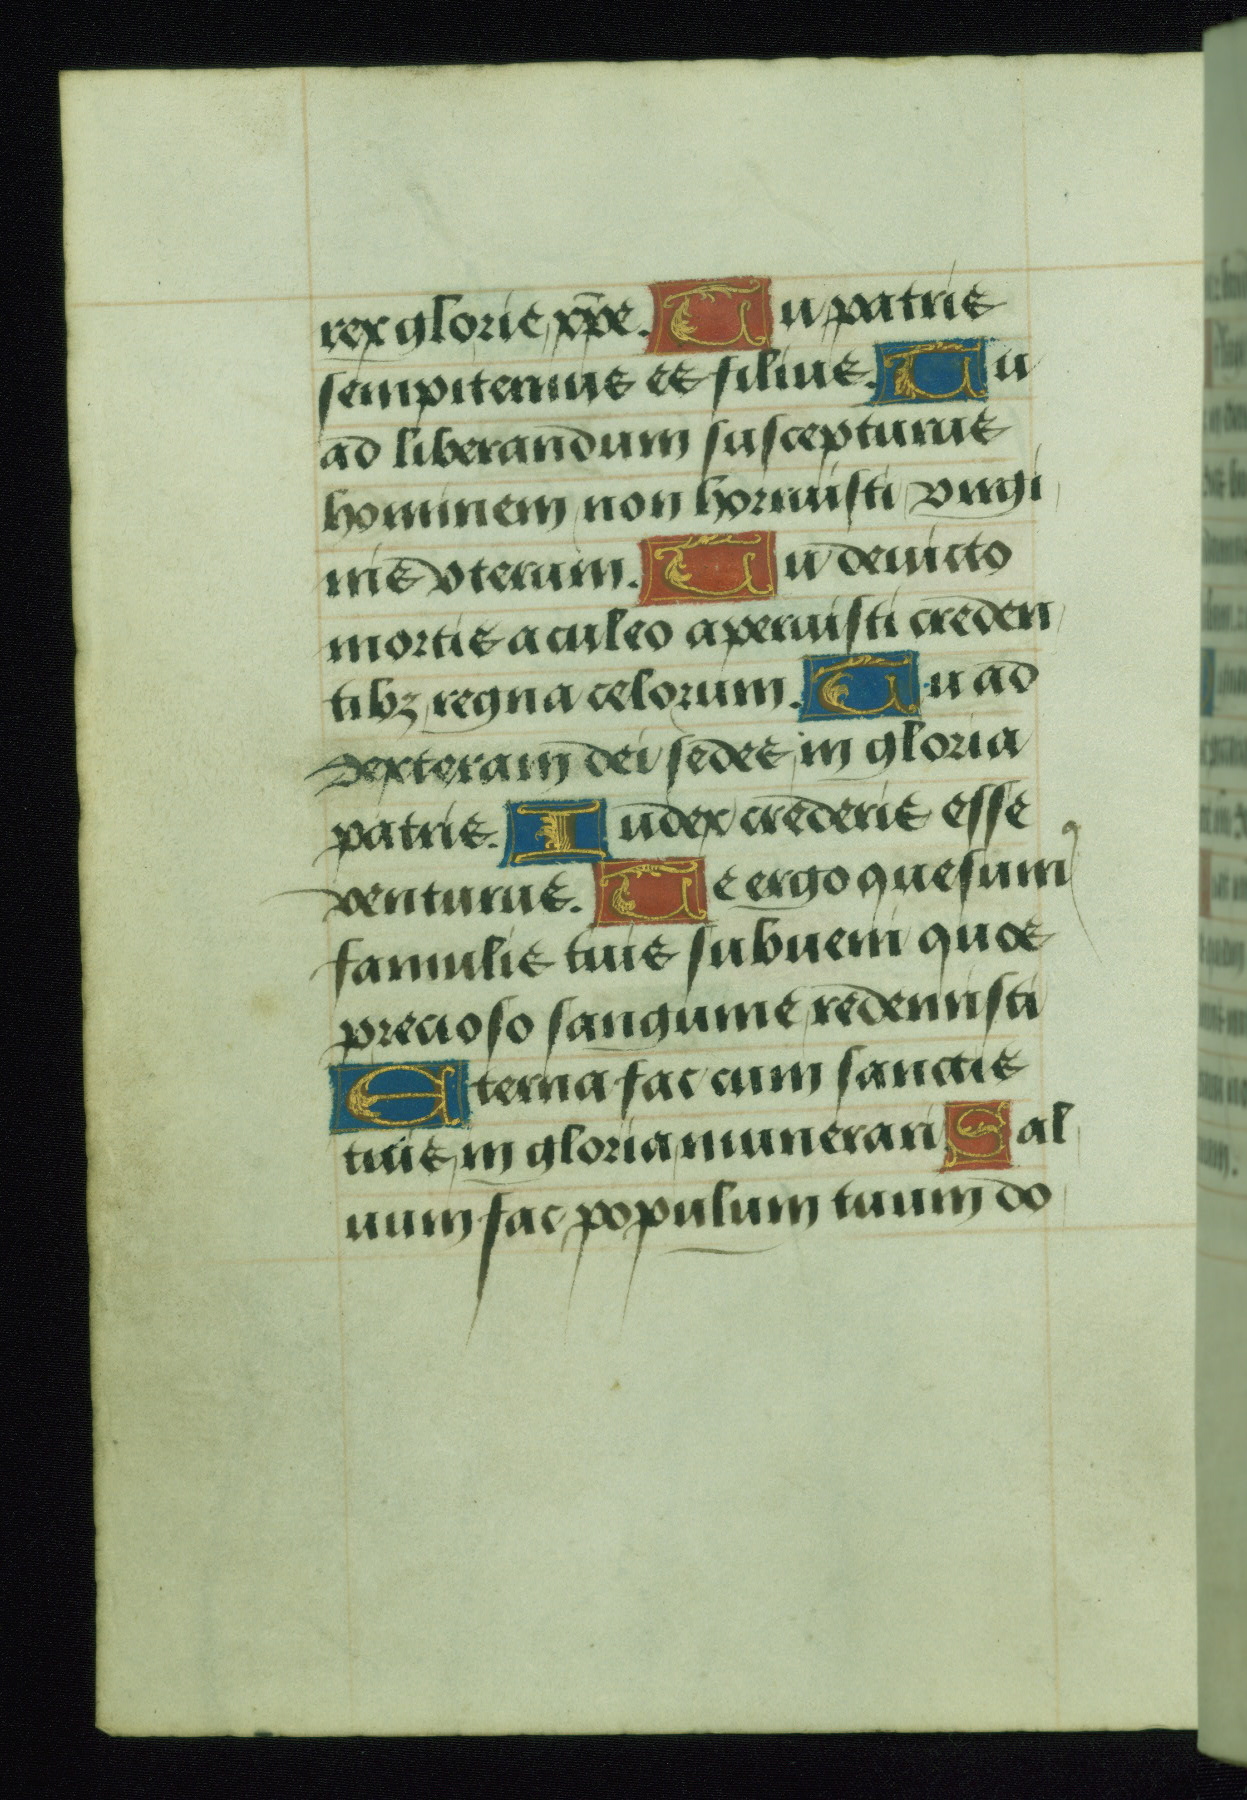 rex glorie xp̄e. Tu patris
sempiternus es filius. Tu
ad liberandum suscepturus
hominem non horruisti virgi
nis vterum. Tu deuicto
mortis aculeo aperuisti creden
tibꝫ regna celorum. Tu ad
dexteram dei sedes in gloria
patris. Iudex crederis esse
venturus. Te ergo quesumꝰ
famulis tuis subueni quos
precioso sanguine redemisti
Eterna fac cum sanctis
tuis in gloria munerari. Sal
uum fac populum tuum do